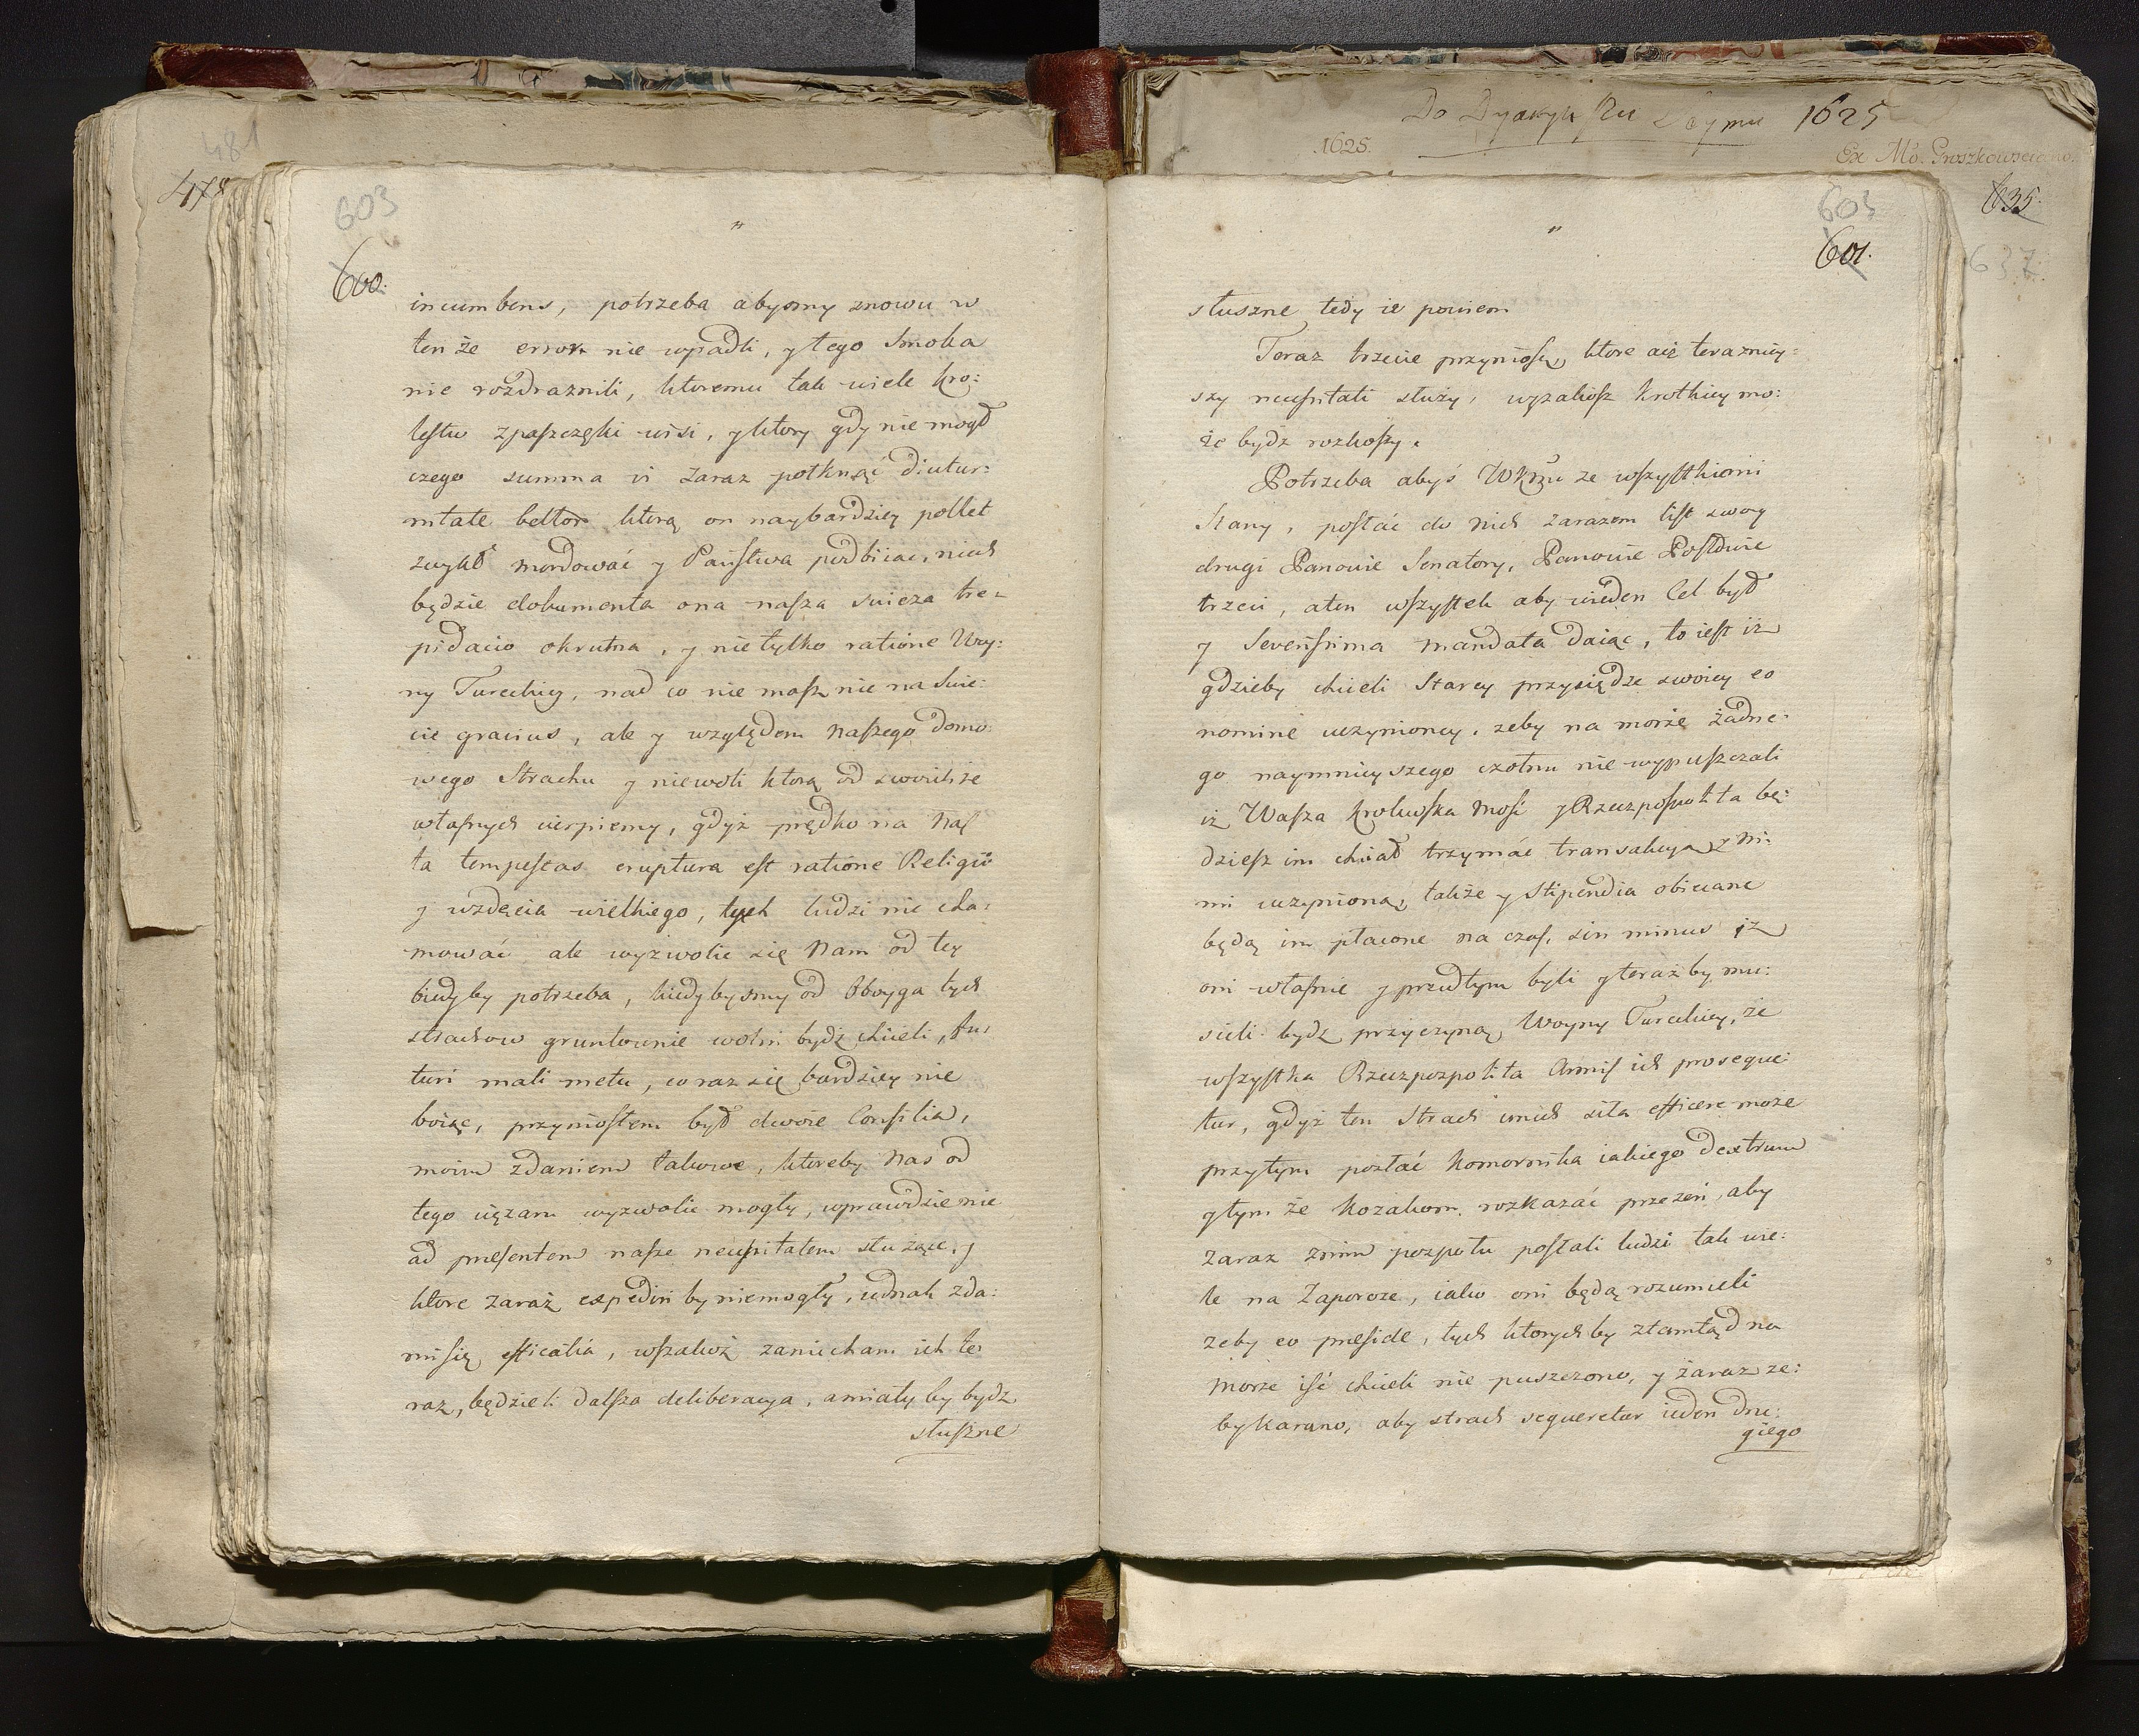 481
478
603
600.
"
incumbens, potrzeba abysmy znowu w
ten że error nie wpadli, y tego Smoka
nie rozdraznili, ktoremu tak wiele kro:
lestw zpaszczęki wisi, y ktory gdy nie mogł
czego summa vi zaraz połknąć diutur:
nitate bellor ktorą on naybardziey pollet
zwykł mordować y Państwa podbiiac, niech
będzie dokumenta ona nasza swieza tre:
pidacio okrutna, y nie tylko ratione Woy:
ny Tureckiey, nad co nie masz nic na swie:
cie gracius, ale y względem naszego domo:
wego Strachu y niewoli ktorą od swoichże
własnych cierpiemy, gdyż prędko na Nas
ta tempestas eruptura est ratione Religii
y wzdęcia wielkiego, tych ludzi nie cha:
mować ale wyzwolic się Nam od tey
biedy by potrzeba, kiedybysmy od Oboyga tych
strachow gruntownie wolni bydź chcieli, fu:
turi mali metu, co raz się bardziey nie
boiąc, przyniosłem był dwoie Consilia,
moim zdaniem takowe, ktoreby Nas od
tego cięzaru wyzwolic mogły, wprawdzie nie
ad presentem nasze necessitatem służące, y
ktore zaraz expediri by niemogły, iednak zda:
mi się efficatia, wszakoż zaniecham ich te
raz, będzieli dalsza deliberacya, a miały by bydz
słuszne
Do 1625
1625.
Ex Mo. Groszkowsciano.
635.
637.
603
601.
"
słuszne tedy ie powiem
Teraz trzecie przyniosę, ktore acz terazniey:
szy necessitati służy, wszakosz krotkiey mo:
że bydz rozkoszy.
Potrzeba abyś WKMu ze wszystkiemi
Stany, posłać do nich zarazem list swoy
drugi Panowie Senatory, Panowie Posłowie
trzeci, a ten wszystek aby w ieden Cel był
y Severissima mandata daiąc, to iest iz
gdzieby chcieli Starey przysiędze swoiey eo
nomine uczynioney, zeby na morze żadne:
go naymnieyszego czołnu nie wypuszczali
iż Wasza Krolewska Mość y Rzeczpospolita bę:
dziesz im chciał trzymać transakcyą z ni:
mi uczynioną, także y Stipendia obiecane
będą im płacone na czas, sin minus iz
oni własnie y przedtym byli y teraz by mu:
sieli bydz przyczyną, Woyny Tureckiey, że
wszystka Rzeczpospolita Armis ich proseque:
tur, gdyż ten Strach unich siła efficere może
przytym posłać Komornika iakiego Dextrum
y tym że Kozakom rozkazać przezeń, aby
zaraz znim pospołu posłali ludzi tak wie:
le na Zaporoze, iako oni będą rozumieli
zeby eo preside, tych ktorychby ztamtąd na
morze iść chcieli nie puszczono, y zaraz ze:
by karano, aby strach sequeretur ieden dru:
giego